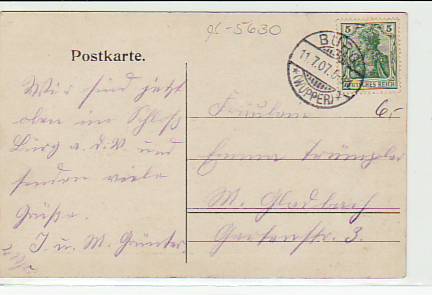 gl-5630
5 5
DEUTSCHES REICH
BURG
11.7.07.
*(WUPPER)*
Postkarte.
6,-
Wir sind jetzt
oben im Schloß
Burg a. d. W. und
senden viele
Grüße.
J. u. M. Günter
Fräulein
Emma
M. Gladbach
Gartenstr. 3.